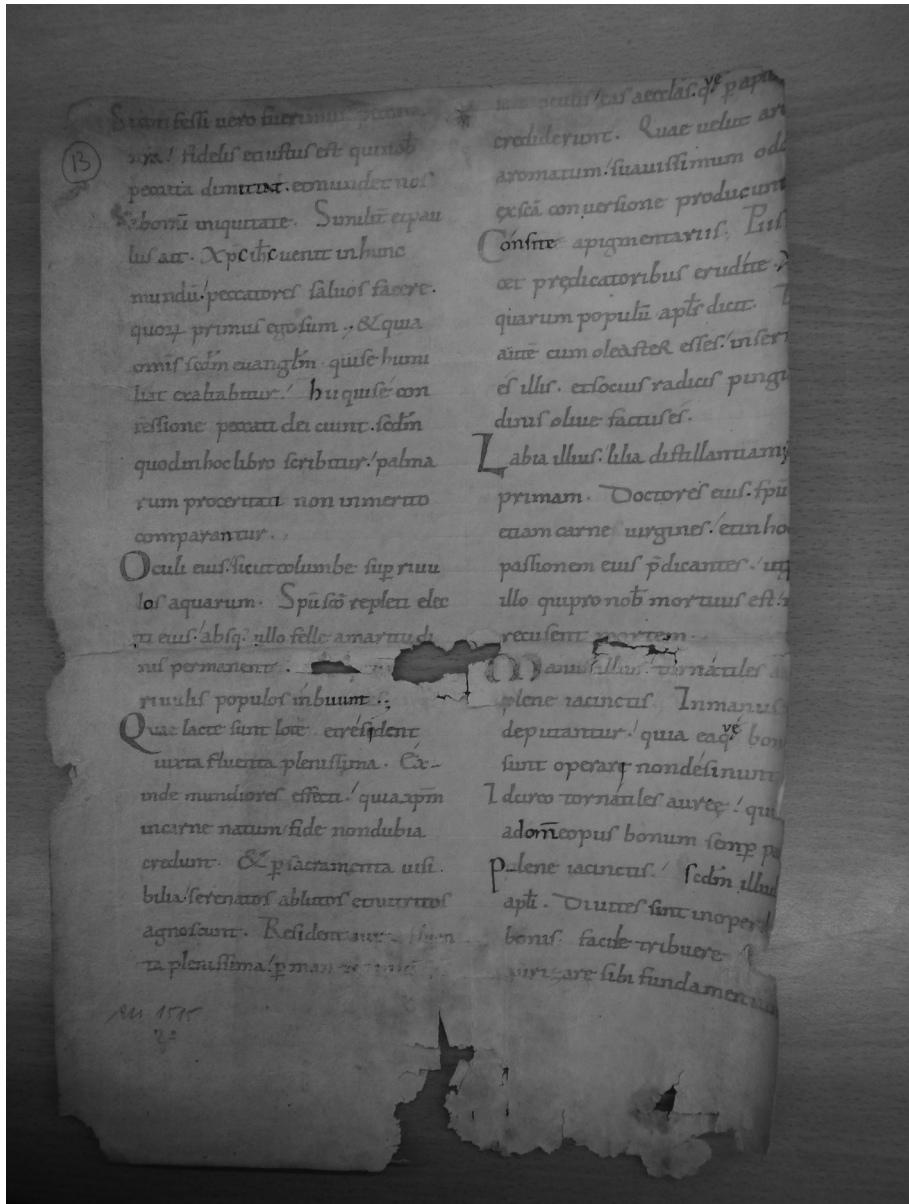 Si confessi uero fuerimus peccata
nr̄a / fidelis et iustus est qui nob̄
peccata dimittat. et mundet nos
ab omī iniquitate. Similit̄ et pau
lus ait. Xp̄c ih̄c uenit in hunc
mundū / peccatores saluos facere.
quoꝝ primus ego sum. & quia
omīs scd̄m euangl̄m qui se humi
liat exaltabitur / hi qui se con
fessione peccati deiciunt. scd̄m
quod in hoc libro scribitur / palma
rum proceritati non inmerito
comparantur.
Oculi eius. sicut columbe sup̄ riuu
los aquarum. Sp̄u sc̄o repleti elec
ti eius / absq. ullo felle amaritudi
nis permanent.
riuulis populos inbuunt.
Quae lacte sunt lote et resident
iuxta fluenta plenissima. Ex-
inde mundiores effecti / quia xp̄m
in carne natum / fide non dubia
credunt. & p̄ sacramenta uisi
bilia / se renatos ablutos et nutritos
agnoscunt. Resident
ta plenissima / p̄
13
AM 1515
2º
eas aecclās. qve p̄
crediderunt. Quae uelut
aromatum / suauissimum
ex sc̄a conuersione producunt
Consite a pigmentariis.
predicatoribus erudite
quarum populū apl̄s dicit.
autē cum oleasteR esses /
es illis. et socius radicis pingu
dinis oliue factus es.
Labia illius / lilia distillantia
primam. Doctores eius.
etiam carne uirgines / et in
passionem eius p̄dicantes /
illo qui pro nob̄ mortuus est /
recusent mortem.
Manus illius / tornatiles
plene iacinctis. In manus
deputantur / quia ea qve
sunt operari non desinunt
Ideo tornatiles auree /
ad om̄e opus bonum semp̄
Plene iacinctis / scd̄m illud
apl̄i. Diuites sint in
bonis facile tribuere
sibi